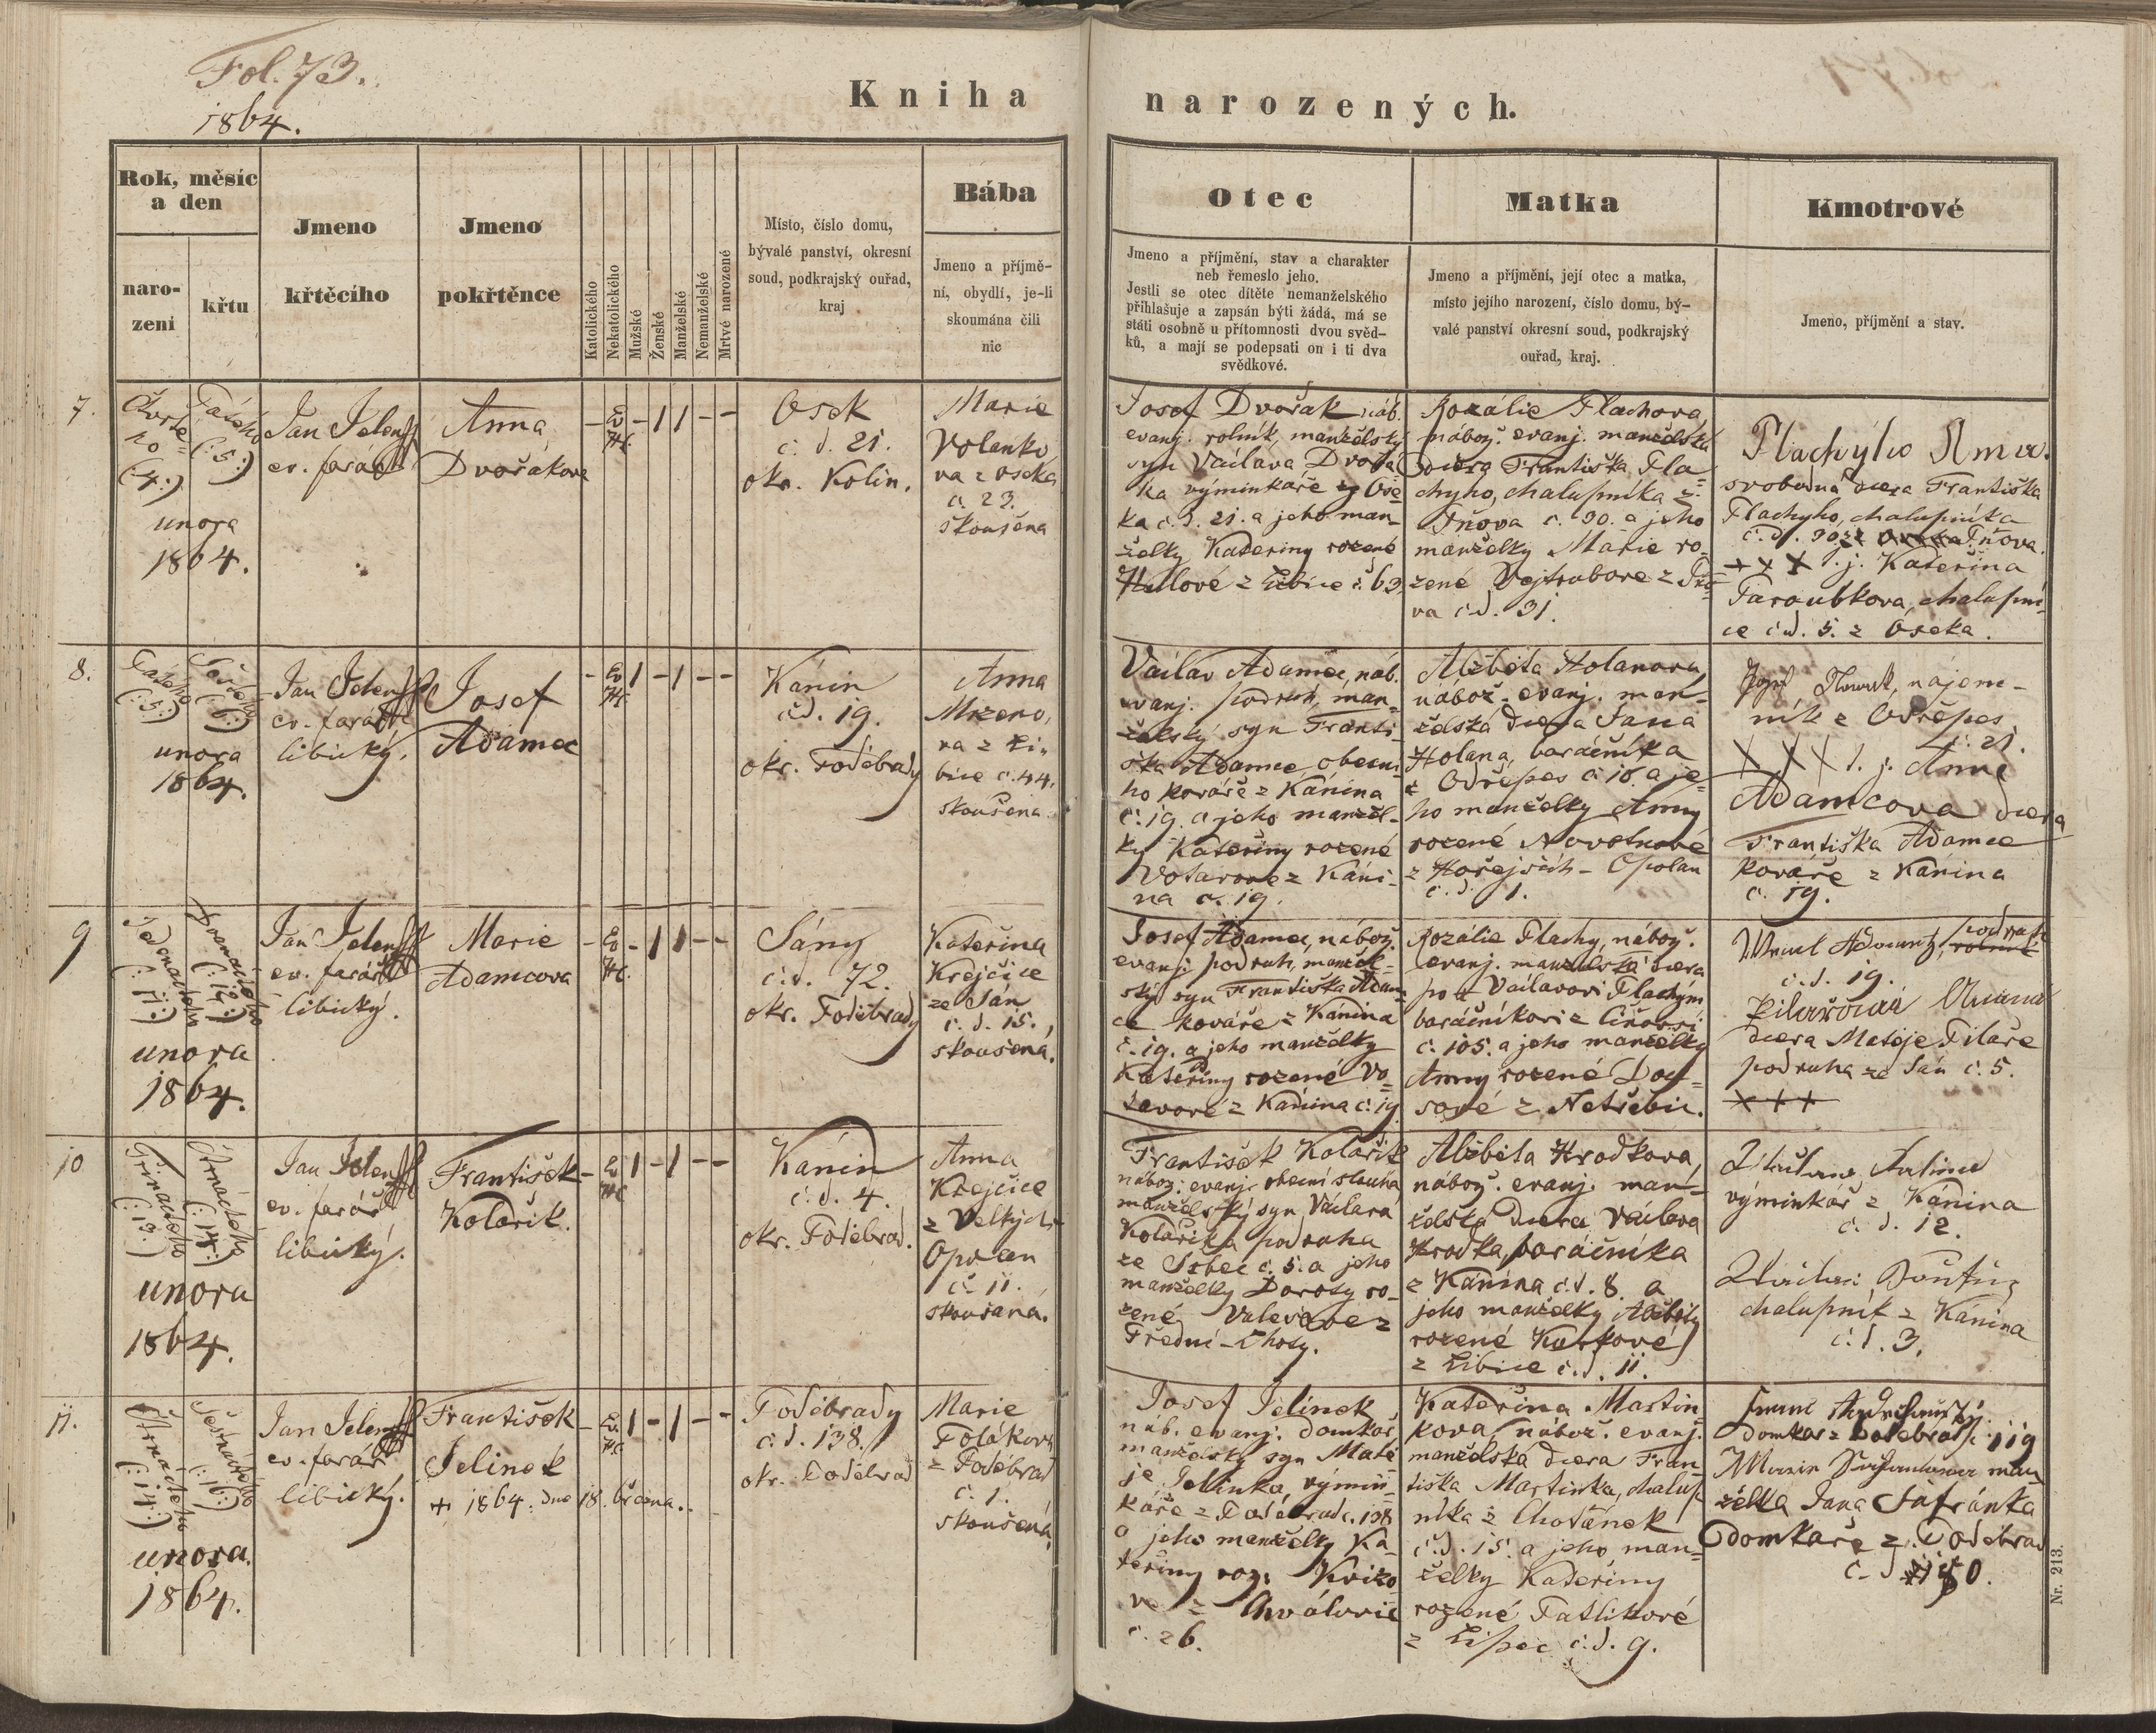 Fol. 73.
1864.
Kniha
narozených.
Rok, měsíc
a den
naro-
zení
křtu
Jmeno
křtěcího
Jmeno
pokřtěnce
Katolického
Nekatolického
Mužské
Ženské
Manželské
Nemanželské
Mrtvé narozené
Místo, číslo domu,
bývalé panství, okresní
soud, podkrajský ouřad,
kraj
Bába
Jmeno a příjmě-
ní, obydlí, je-li
skoumána čili
nic
Otec
Jmeno a příjmění, stav a charakter
neb řemeslo jeho.
Jestli se otec dítěte nemanželského
přihlašuje a zapsán býti žádá, má se
státi osobně u přítomnosti dvou svěd-
ků, a mají se podepsati on i ti dva
svědkové.
Matka
Jmeno a příjmění, její otec a matka,
místo jejího narození, číslo domu, bý-
valé panství okresní soud, podkrajský
ouřad, kraj.
Kmotrové
Jmeno, příjmění a stav.
7.
Čtvrté-
ho
(:4:)
Pátého
(:5:)
unora
1864.
Jan Jelen
ev. farář
Anna
Dvořákova
- Ev. H.C. - 1 1 - -
Osek
č. d. 21.
okr. Kolín.
Marie
Volanko
va z Oseka
č. 23.
skoušena
Josef Dvořák náb.
evanj. rolník, manželský
syn Václava Dvořá
ka výminkaře z Ose-
ka č. d. 21. a jeho man-
želky Kateřiny rozené
z Libice č. 63.
Rozálie Plachova,
nábož. evanj. manželská
dcera Františka Pla-
chyho, chalupníka z
č. 90. a jeho
manželky Marie ro-
zené Vojtrubove z
va č. d. 31.
Plachýho Anna.
svobodna dcera Františka
Plachyho, chalupníka
č. d. 90 z
+ X X t. j. Kateřina
Paroubkova, chalupni-
ce č. d. 5. z Oseka.
8.
Pátého
(:5:)
Šestého
(:6:)
unora
1864.
Jan Jelen
ev. farář
libický.
Josef
Adamec
- Ev. H.C. 1 - 1 - -
Kánín
č. d. 19.
okr. Poděbrady
Anna
Mrzeno,
va z Li-
bice č. 44.
skoušena.
Václav Adamec, náb.
evanj. podruh, man-
želský syn Franti-
ška Adamce, obecní-
ho kováře z Kánína
č. 19. a jeho manžel-
ky Kateřiny rozené
Votavove z Káni-
na č. 19.
Alžběta Holanova,
nábož. evanj. man-
želská dcera Jana
Holana, baráčníka
z Odřepes č. 18. a je-
ho manželky Anny
rozené Novotnové
z Hořejších-Opolan
č. d. 1.
Josef Nowak, nájem-
ník z Odřepes
č. 21.
X X X t. j. Anna
Adamcova dcera
Františka Adamce
kováře z Kánína
č. 19.
9
Jedenáctého
(:11:)
Dvanáctého
(:12:)
unora
1864.
Jan Jelen
ev. farář
libický.
Marie
Adamcova
- Ev. H.C. - 1 1 - -
Sány
č. d. 72.
okr. Poděbrady
Kateřina
Krejčice
ze Sán
č. d. 15.,
skoušena.
Josef Adamec, nábož.
evanj. podruh, manžel-
ský syn Františka Adam-
ce kováře z Kánína
č. 19. a jeho manželky
Kateřiny rozené Vo-
tavové z Kánína č. 19
Rozálie Plachy, nábož.
evanj. manželská dcera
po Václavovi Plachým
baráčníkovi z
č. 105. a jeho manželky
Anny rozené
sové z Netřebic.
podruh
rolník
č. d. 19.
Pilařowá
dcera Matěje Pilaře
podruha ze Sán č. 5.
X + +
10
Třináctého
(:13:)
Čtrnáctého
(:14:)
unora
1864.
Jan Jelen
ev. farář
libický.
František
Kolařík.
- Ev. H.C. 1 - 1 - -
Kánín
č. d. 4.
okr. Poděbrad.
Anna
Krejčice
z Velkých
Opolan
č. 11.
skoušaná.
František Kolařík
nábož. evanj. obecní slouha
manželský syn Václava
Kolaříka podruha
ze Srbec č. 5. a jeho
manželky Doroty ro-
zené z
Přední-Lhoty.
Alžběta Hrodkova,
nábož. evanj. man-
želská dcera Václava
Hrodka, baráčníka
z Kánína č. d. 8. a
jeho manželky Alžběty
rozené
z Libice č. d. 11.
výminkář z Kánina
č. d. 12.
chalupník z Kánina
č. d. 3.
11.
Čtrnáctého
(:14:)
Šestnáctého
(:16:)
unora.
1864.
Jan Jelen
ev. farář
libický.
František
Jelinek
+ 1864. dne 18. března.
- Ev. H.C. 1 - 1 - -
Poděbrady
č. d. 138.
okr. Poděbrad
Marie
Polákova
z Poděbrad
č. 1.
skoušená
Josef Jelinek
náb. evanj. domkář
manželský syn Matě-
je Jelínka, výmin-
káře z Poděbrad č. 138
a jeho manželky Ka-
teřiny roz. Křížo-
ve z Chválovic
č. 26.
Kateřina Martin-
kova, nábož. evanj.
manželská dcera Fran-
tiška Martinka, chalup-
níka z Chotánek
č. d. 15. a jeho man-
želky Kateřiny
rozené Patlikové
z Lipec č. d. 9.
domkář z Poděbrad č. 119
man-
želka Jana Šafránka
domkaře z Poděbrad
č. d.
Nr. 213.